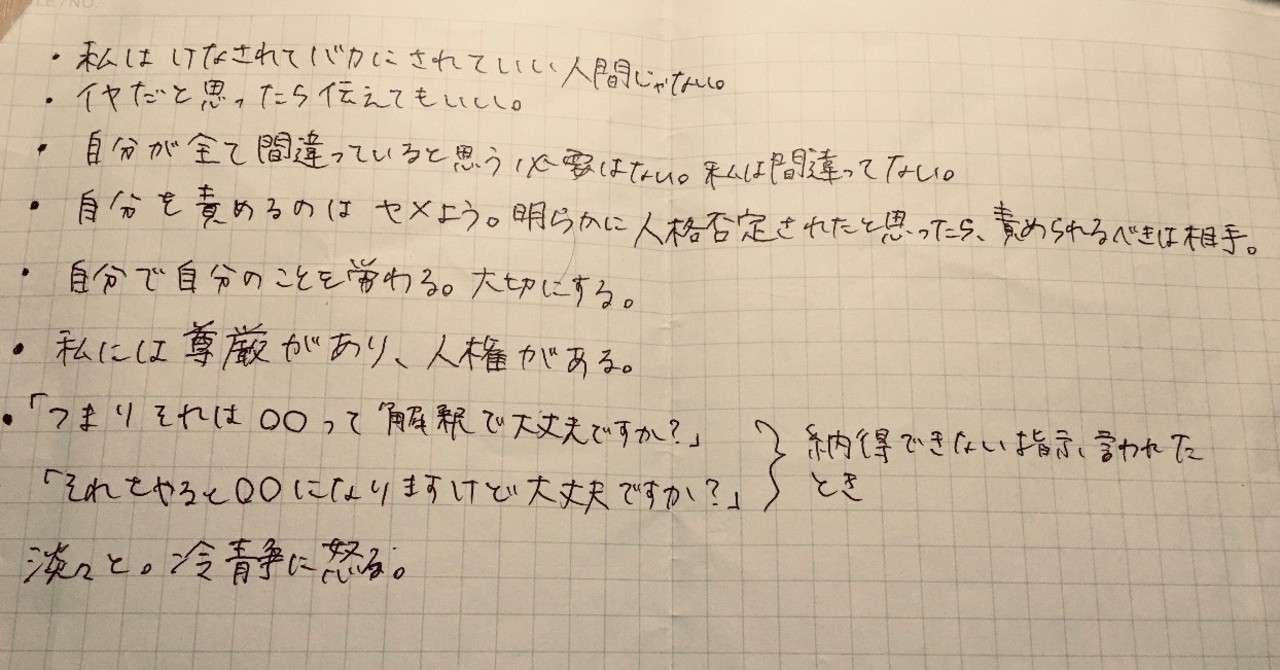 ・私はけなされてバカにされていい人間じゃない。
・イヤだと思ったら伝えてもいい。
・自分が全て間違っていると思う必要はない。私は間違ってない。
・自分を責めるのはヤメよう。明らかに人格否定されたと思ったら、責められるべきは相手。
・自分で自分のことを労わる。大切にする。
・私には尊厳があり、人権がある。
・「つまりそれは〇〇って解釈で大丈夫ですか?」
「それをやると〇〇になりますけど大丈夫ですか?」
納得できない指示、言われた
とき
淡々と。冷静に怒る。